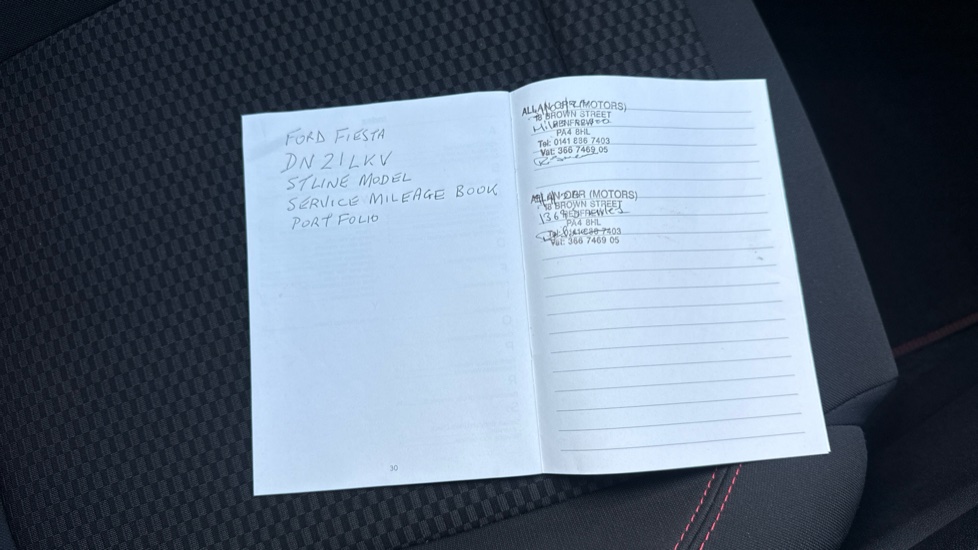 FORD FIESTA
DN21LKV
STLINE MODEL
SERVICE MILEAGE BOOK
PORT FOLIO
30
ALLAN ORR (MOTORS)
18 BROWN STREET
RENFREW
PA4 8HL
Tel: 0141 886 7403
Vat: 366 7469 05
ALLAN ORR (MOTORS)
18 BROWN STREET
RENFREW
PA4 8HL
Tel: 0141 886 7403
Vat: 366 7469 05